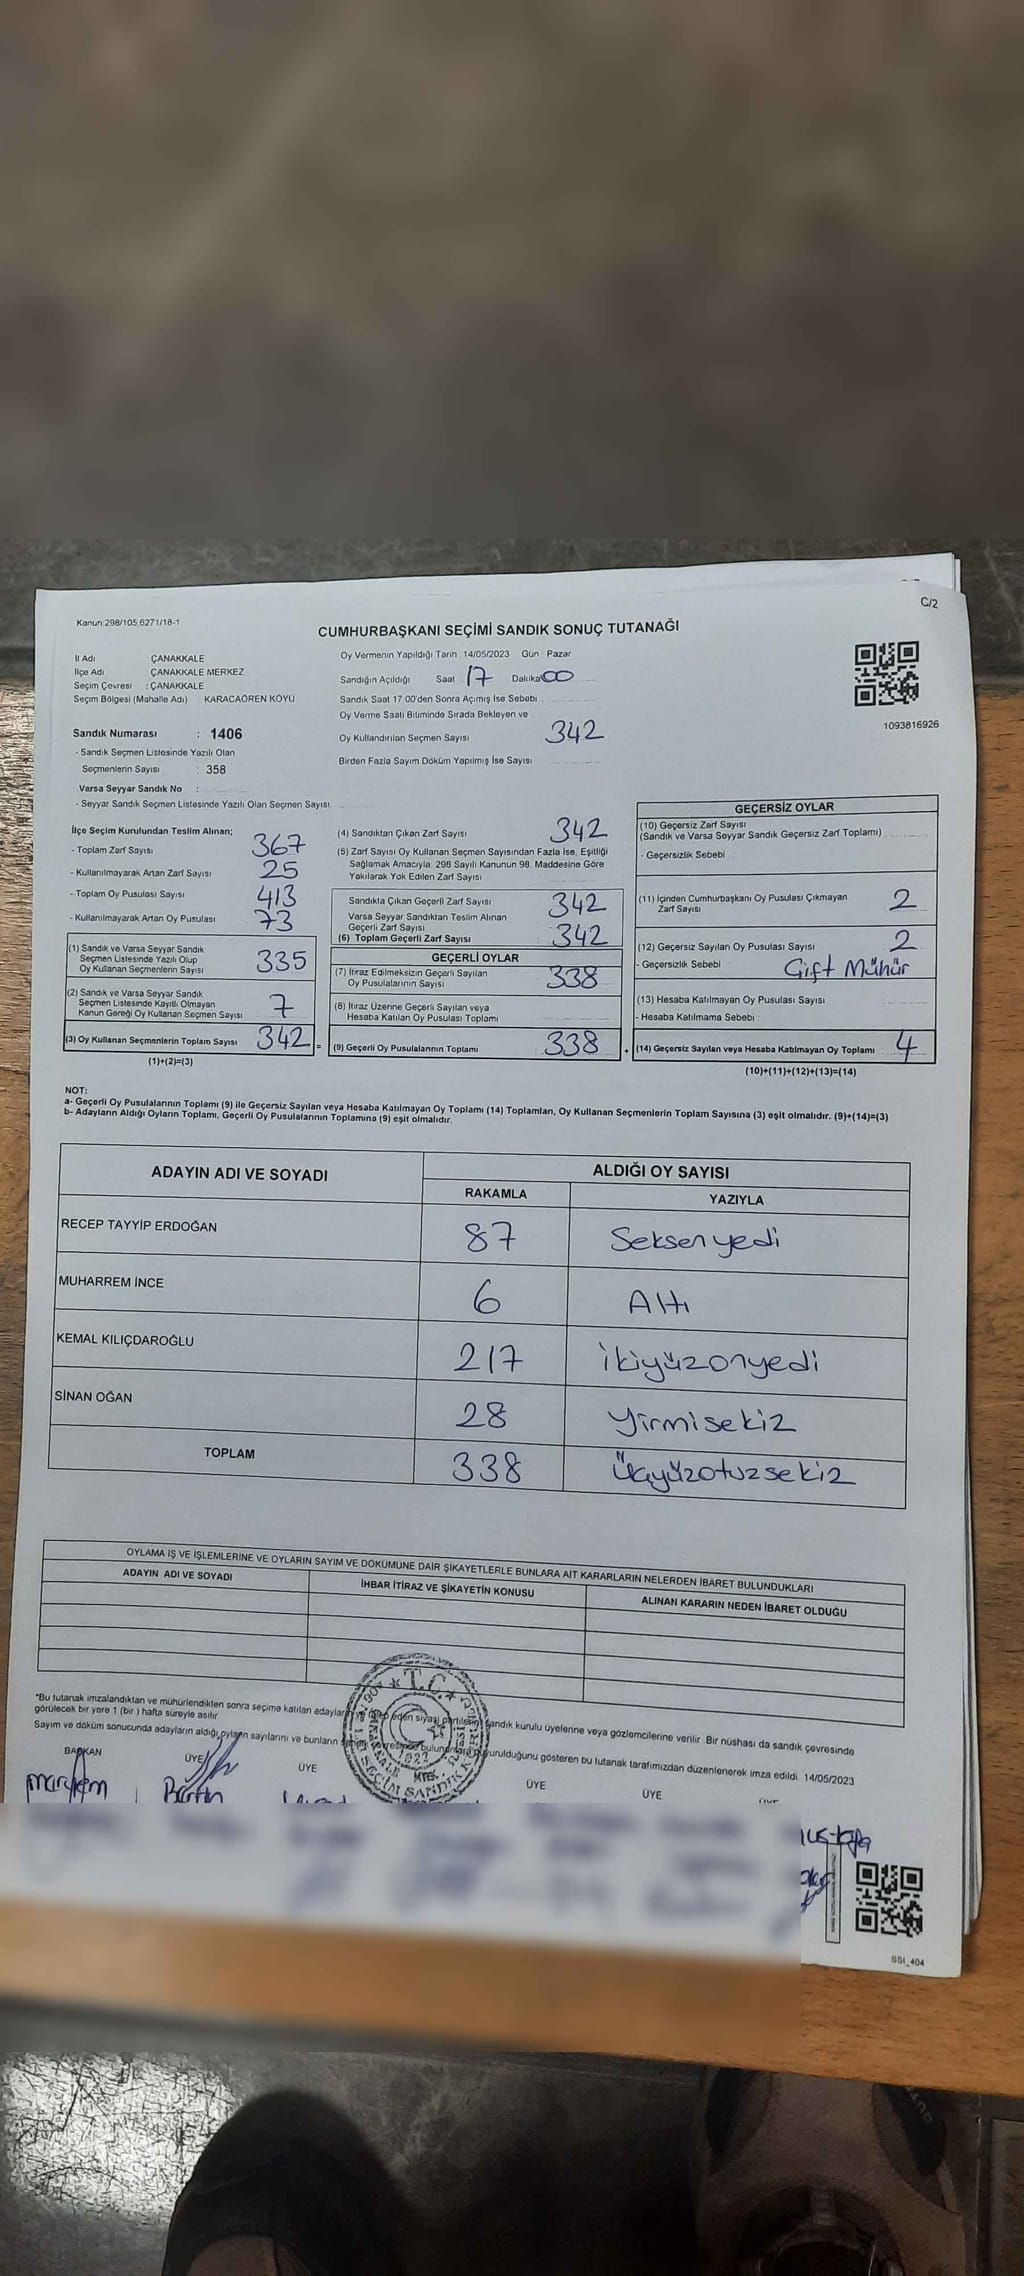 C/2
Kanun:298/105,6271/18-1
CUMHURBAŞKANI SEÇİMİ SANDIK SONUÇ TUTANAĞI
İl Adı ÇANAKKALE
İlçe Adı ÇANAKKALE MERKEZ
Seçim Çevresi : ÇANAKKALE
Seçim Bölgesi (Mahalle Adı) KARACAÖREN KÖYÜ
Oy Vermenin Yapıldığı Tarih 14/05/2023 Gün Pazar
Sandığın Açıldığı Saat 17 Dakika 00
Sandık Saat 17 00'den Sonra Açılmış İse Sebebi
Oy Verme Saati Bitiminde Sırada Bekleyen ve
Oy Kullandırılan Seçmen Sayısı 342
Birden Fazla Sayım Döküm Yapılmış İse Sayısı
1093816926
Sandık Numarası : 1406
- Sandık Seçmen Listesinde Yazılı Olan
Seçmenlerin Sayısı : 358
Varsa Seyyar Sandık No :
- Seyyar Sandık Seçmen Listesinde Yazılı Olan Seçmen Sayısı.
İlçe Seçim Kurulundan Teslim Alınan;
- Toplam Zarf Sayısı 367
- Kullanılmayarak Artan Zarf Sayısı 25
- Toplam Oy Pusulası Sayısı 413
- Kullanılmayarak Artan Oy Pusulası 73
(1) Sandık ve Varsa Seyyar Sandık
Seçmen Listesinde Yazılı Olup
Oy Kullanan Seçmenlerin Sayısı 335
(2) Sandık ve Varsa Seyyar Sandık
Seçmen Listesinde Kayıtlı Olmayan
Kanun Gereği Oy Kullanan Seçmen Sayısı 7
(3) Oy Kullanan Seçmenlerin Toplam Sayısı 342 =
(1)+(2)=(3)
(4) Sandıktan Çıkan Zarf Sayısı 342
(5) Zarf Sayısı Oy Kullanan Seçmen Sayısından Fazla İse, Eşitliği
Sağlamak Amacıyla 298 Sayılı Kanunun 98. Maddesine Göre
Yakılarak Yok Edilen Zarf Sayısı
Sandıkta Çıkan Geçerli Zarf Sayısı 342
Varsa Seyyar Sandıktan Teslim Alınan
Geçerli Zarf Sayısı
(6) Toplam Geçerli Zarf Sayısı 342
GEÇERLİ OYLAR
(7) İtiraz Edilmeksizin Geçerli Sayılan
Oy Pusulalarının Sayısı 338
(8) İtiraz Üzerine Geçerli Sayılan veya
Hesaba Katılan Oy Pusulası Toplamı
(9) Geçerli Oy Pusulalarının Toplamı 338 +
GEÇERSİZ OYLAR
(10) Geçersiz Zarf Sayısı
(Sandık ve Varsa Seyyar Sandık Geçersiz Zarf Toplamı)
- Geçersizlik Sebebi
(11) İçinden Cumhurbaşkanı Oy Pusulası Çıkmayan
Zarf Sayısı 2
(12) Geçersiz Sayılan Oy Pusulası Sayısı 2
- Geçersizlik Sebebi Çift Mühür
(13) Hesaba Katılmayan Oy Pusulası Sayısı
- Hesaba Katılmama Sebebi :
(14) Geçersiz Sayılan veya Hesaba Katılmayan Oy Toplamı 4
(10)+(11)+(12)+(13)=(14)
NOT:
a- Geçerli Oy Pusulalarının Toplamı (9) ile Geçersiz Sayılan veya Hesaba Katılmayan Oy Toplamı (14) Toplamları, Oy Kullanan Seçmenlerin Toplam Sayısına (3) eşit olmalıdır. (9)+(14)=(3)
b- Adayların Aldığı Oyların Toplamı, Geçerli Oy Pusulalarının Toplamına (9) eşit olmalıdır.
ADAYIN ADI VE SOYADI ALDIĞI OY SAYISI
RAKAMLA YAZIYLA
RECEP TAYYİP ERDOĞAN 87 Seksenyedi
MUHARREM İNCE 6 Altı
KEMAL KILIÇDAROĞLU 217 İkiyüzonyedi
SİNAN OĞAN 28 Yirmisekiz
TOPLAM 338 Üçyüzotuzsekiz
OYLAMA İŞ VE İŞLEMLERİNE VE OYLARIN SAYIM VE DÖKÜMÜNE DAİR ŞİKAYETLERLE BUNLARA AİT KARARLARIN NELERDEN İBARET BULUNDUKLARI
ADAYIN ADI VE SOYADI İHBAR İTİRAZ VE ŞİKAYETİN KONUSU ALINAN KARARIN NEDEN İBARET OLDUĞU
*Bu tutanak imzalandıktan ve mühürlendikten sonra seçime katılan adaylar eden siyasi partilerin sandık kurulu üyelerine veya gözlemcilerine verilir. Bir nüshası da sandık çevresinde
görülecek bir yere 1 (bir) hafta süreyle asılır.
Sayım ve döküm sonucunda adayların aldığı oyların sayılarını ve bunların duyurulduğunu gösteren bu tutanak tarafımızdan düzenlenerek imza edildi. 14/05/2023
T.C.
1923
BAŞKAN ÜYE ÜYE ÜYE ÜYE
SSI_404